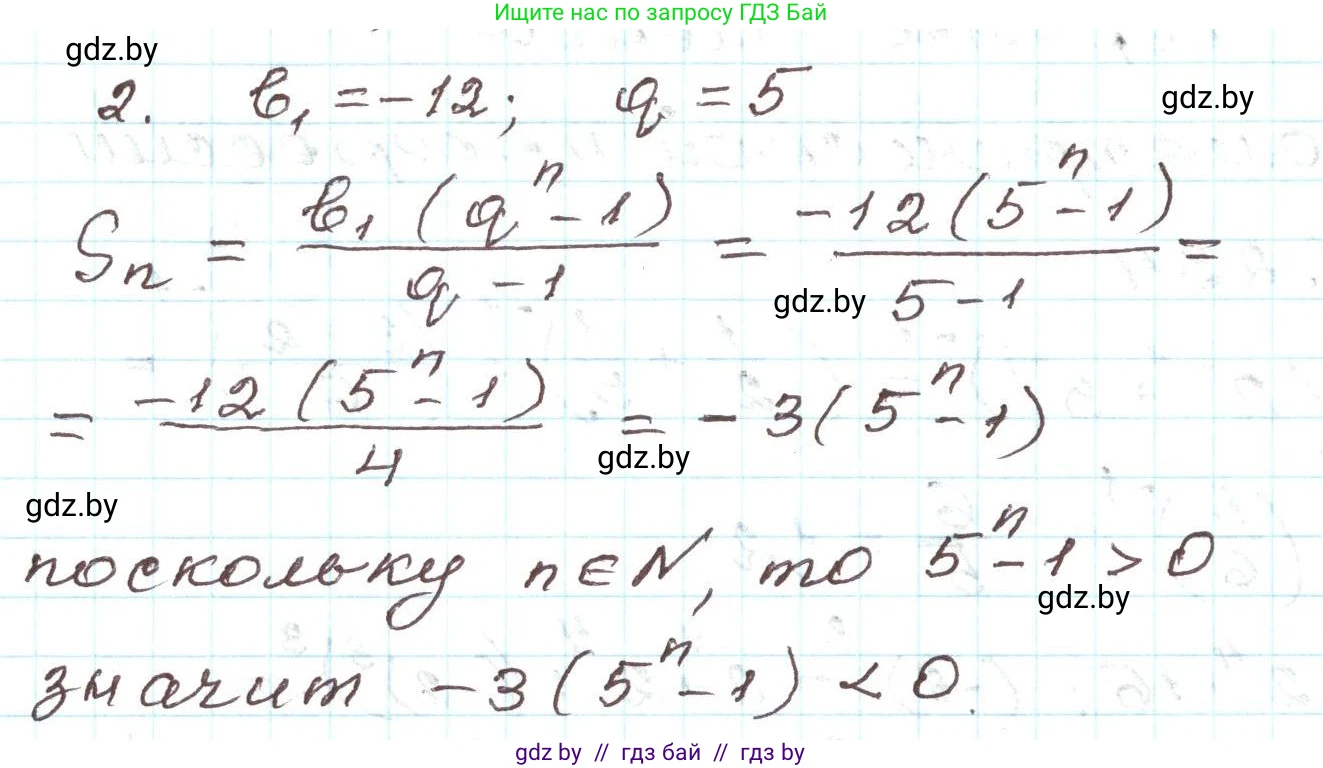 Ищите нас по запросу ГДЗ Бай
gdz.by
2. b₁ = -12; q = 5
gdz.by
Sₙ = b₁(qⁿ - 1) / q - 1 = -12(5ⁿ - 1) / 5 - 1 =
gdz.by
= -12(5ⁿ - 1) / 4 = -3(5ⁿ - 1)
gdz.by
gdz.by
поскольку n∈N, то 5ⁿ - 1 > 0
gdz.by
значит -3(5ⁿ - 1) < 0.
gdz.by // гдз бай // гдз by